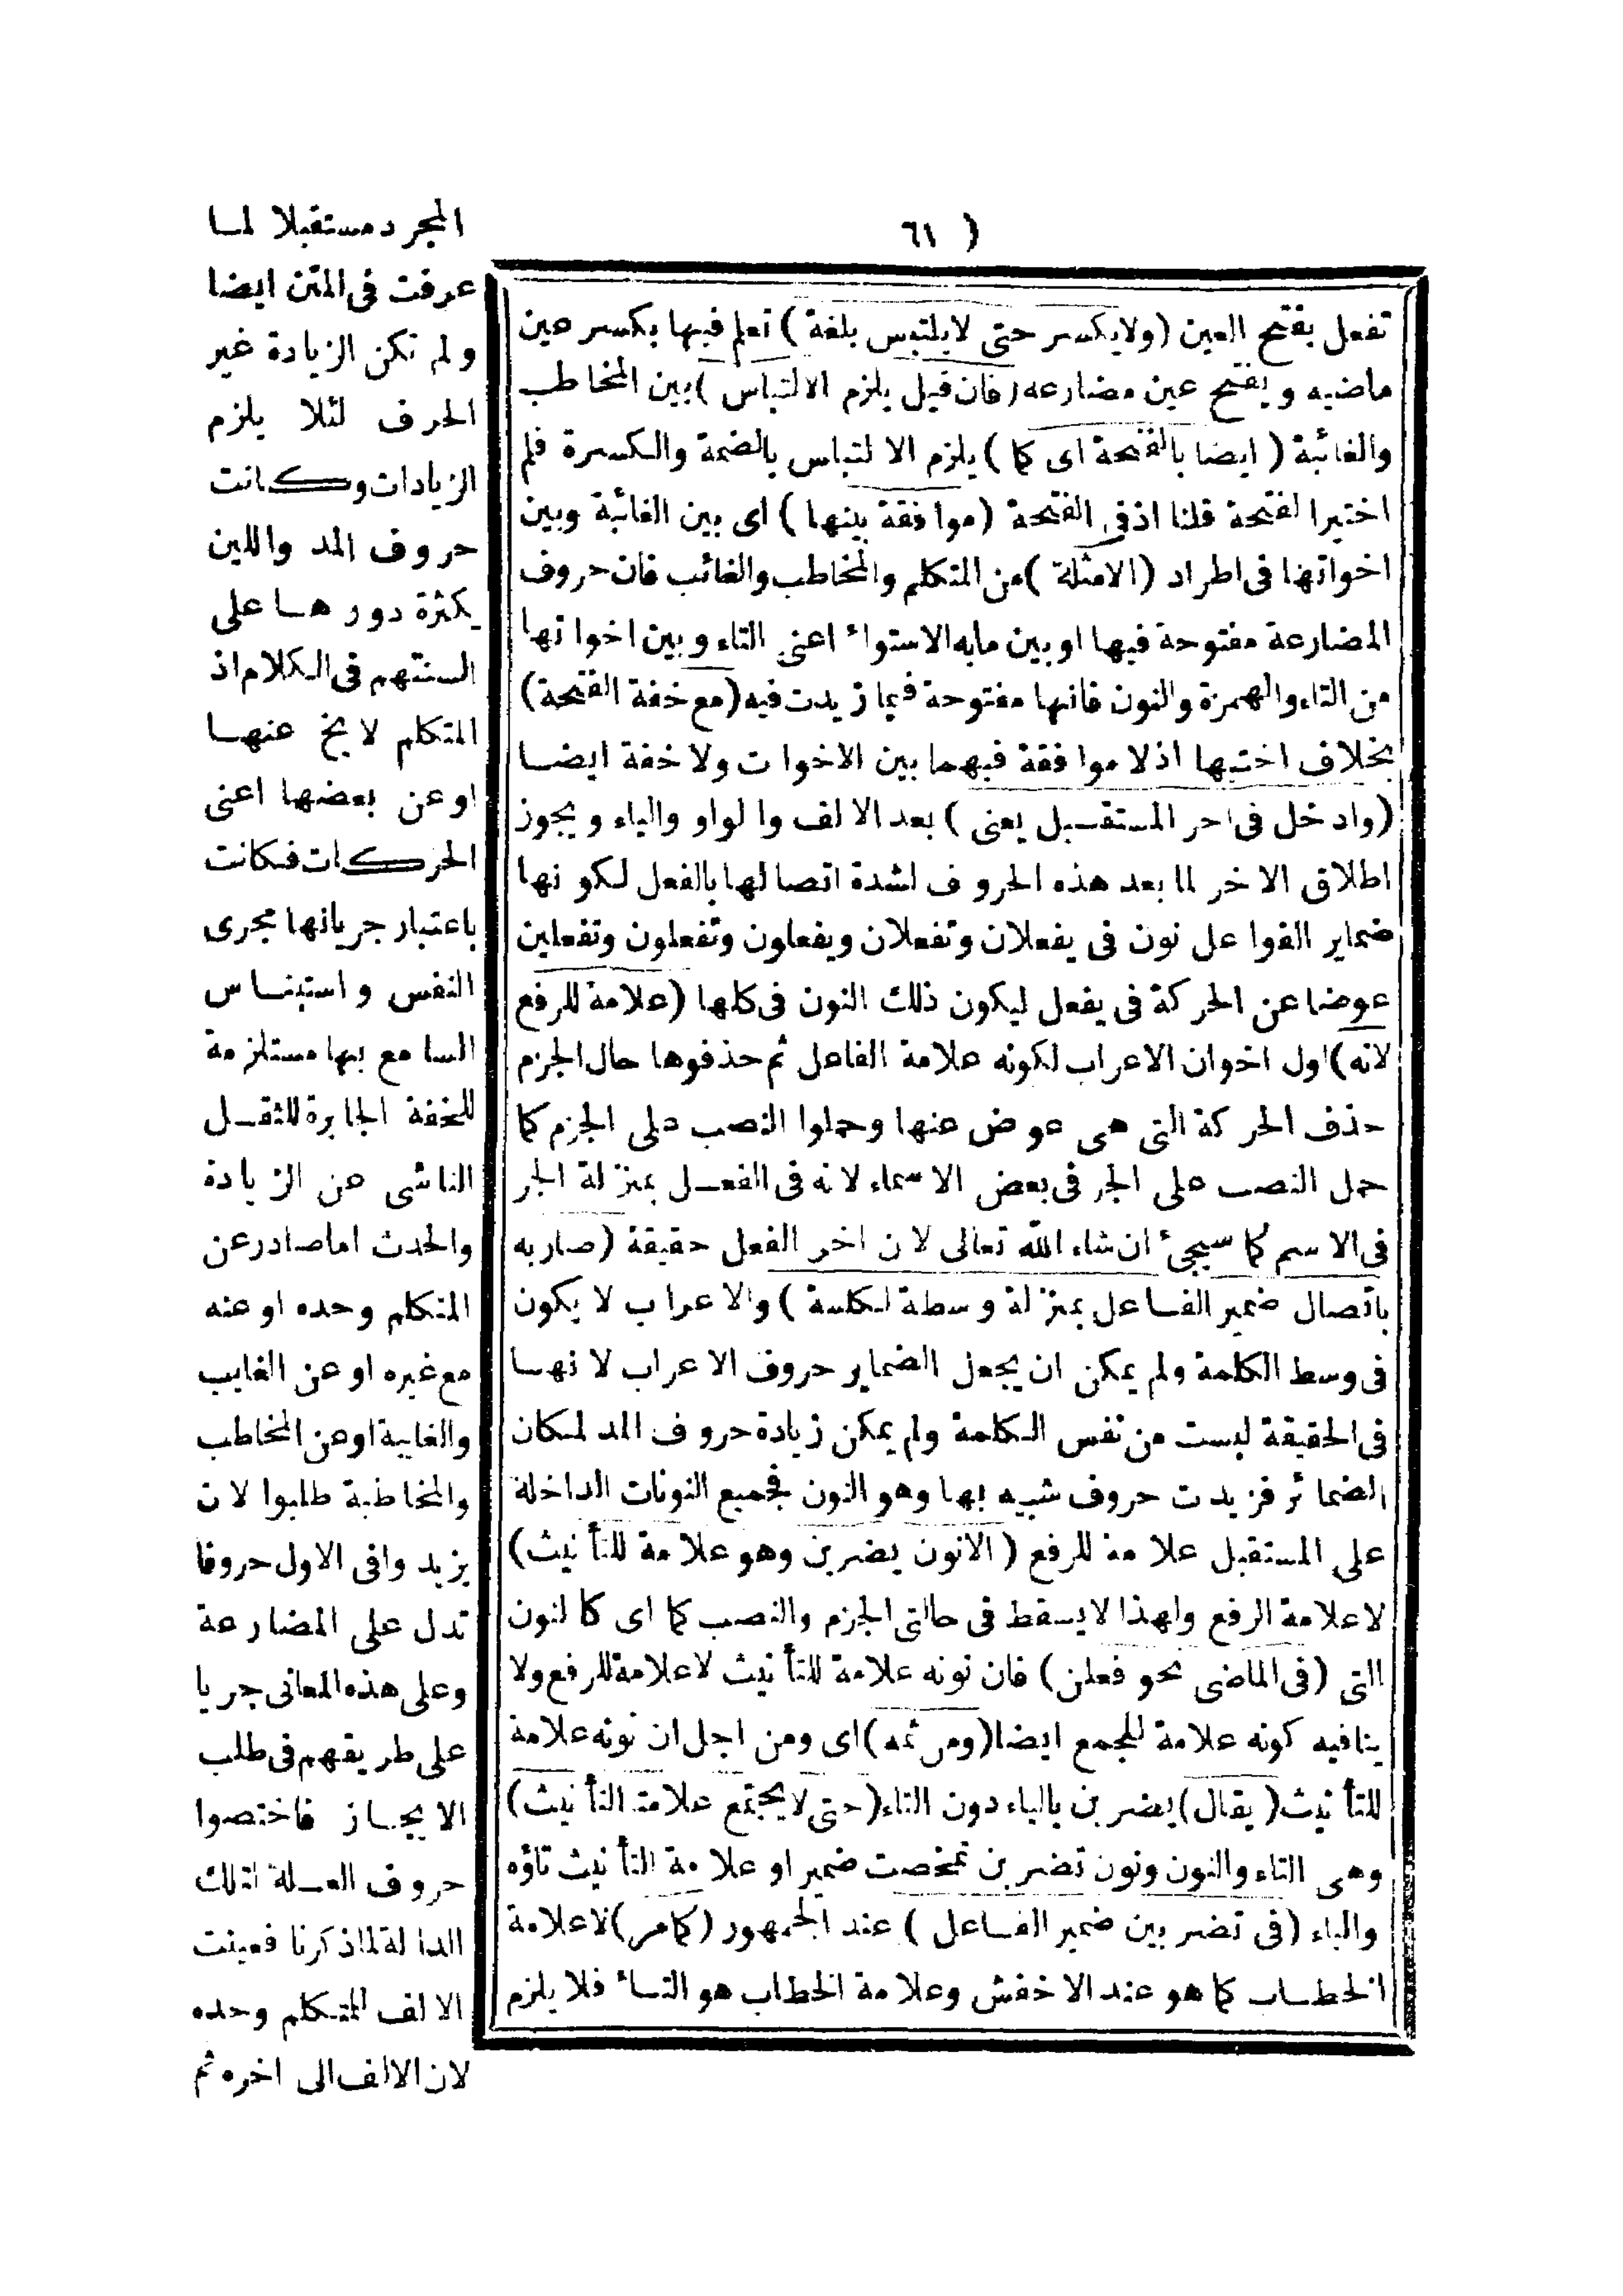 ( ٦١
تفعل بفتح العين (ولايكسر حتى لايلتبس بلغة) تعلم فيها بكسر عين
ماضيه و بفتح عين مضارعه (فان قيل يلزم الالتباس) بين المخاطب
والغائبة (ايضا بالفتحة اى كما) يلزم الالتباس بالضمة والكسرة فلم
اختير الفتحة قلنا اذ فى الفتحة (موافقة بينها) اى بين الغائبة وبين
اخواتها فى اطراد (الامثلة) من المتكلم والمخاطب والغائب فان حروف
المضارعة مفتوحة فيها او بين مابه الاستواء اعنى التاء و بين اخواتها
من التاء والهمزة والنون فانها مفتوحة فيما زيدت فيه (مع خفة الفتحة)
بخلاف اختيها اذ لا موافقة فيهما بين الاخوات ولا خفة ايضا
(وادخل فى اخر المستقبل يعنى) بعد الالف والواو والياء و يجوز
اطلاق الاخر لما بعد هذه الحروف لشدة اتصالها بالفعل لكونها
ضماير الفواعل نون فى يفعلان وتفعلان ويفعلون وتفعلون وتفعلين
عوضا عن الحركة فى يفعل ليكون ذلك النون فى كلها (علامة للرفع
لانه) اول اخوان الاعراب لكونه علامة الفاعل ثم حذفوها حال الجزم
حذف الحركة التى هى عوض عنها وحملوا النصب على الجزم كما
حمل النصب على الجر فى بعض الاسماء لانه فى الفعل بمنزلة الجر
فى الاسم كما سيجىء ان شاء الله تعالى لان اخر الفعل حقيقة (صار به
باتصال ضمير الفاعل بمنزلة وسطة لكلمة) والاعراب لا يكون
فى وسط الكلمة ولم يمكن ان يجعل الضماير حروف الاعراب لانها
فى الحقيقة ليست من نفس الكلمة ولم يمكن زيادة حروف المد لمكان
الضمائر فزيدت حروف شبيه بها وهو النون فجميع النونات الداخلة
على المستقبل علامة للرفع (الانون يضربن وهو علامة للتأنيث)
لاعلامة الرفع ولهذا لايسقط فى حالتى الجزم والنصب كما اى كالنون
التى (فى الماضى نحو فعلن) فان نونه علامة للتأنيث لاعلامة للرفع ولا
ينافيه كونه علامة للجمع ايضا (ومن ثمه) اى ومن اجل ان نونه علامة
للتأنيث (يقال) يضربن بالياء دون التاء (حتى لايجتمع علامتا التأنيث)
وهى التاء والنون ونون تضربن تمخصت ضمير او علامة التأنيث تاؤه
والياء (فى تضربين ضمير الفاعل) عند الجمهور (كمامر) لاعلامة
الخطاب كما هو عند الاخفش وعلامة الخطاب هو التاء فلا يلزم
المجرد مستقبلا لما
عرفت فى المتن ايضا
ولم تكن الزيادة غير
الحرف لئلا يلزم
الزيادات وكانت
حروف المد واللين
يكثرة دورها على
السنتهم فى الكلام اذ
المتكلم لا يخ عنها
او عن بعضها اعنى
الحركات فكانت
باعتبار جريانها مجرى
النفس واستيناس
السامع بها مستلزمة
للخفة الجابرة للثقل
الناشى عن الزيادة
والحدث اما صادر عن
المتكلم وحده او عنه
مع غيره او عن الغايب
والغايبة او عن المخاطب
والمخاطبة طلبوا لان
يزيدوا فى الاول حروفا
تدل على المضارعة
وعلى هذه المعانى جريا
على طريقهم فى طلب
الايجاز فاختصوا
حروف العلة لتلك
الدالة لماذكرنا فعينت
الالف للمتكلم وحده
لان الالف الى اخره ثم